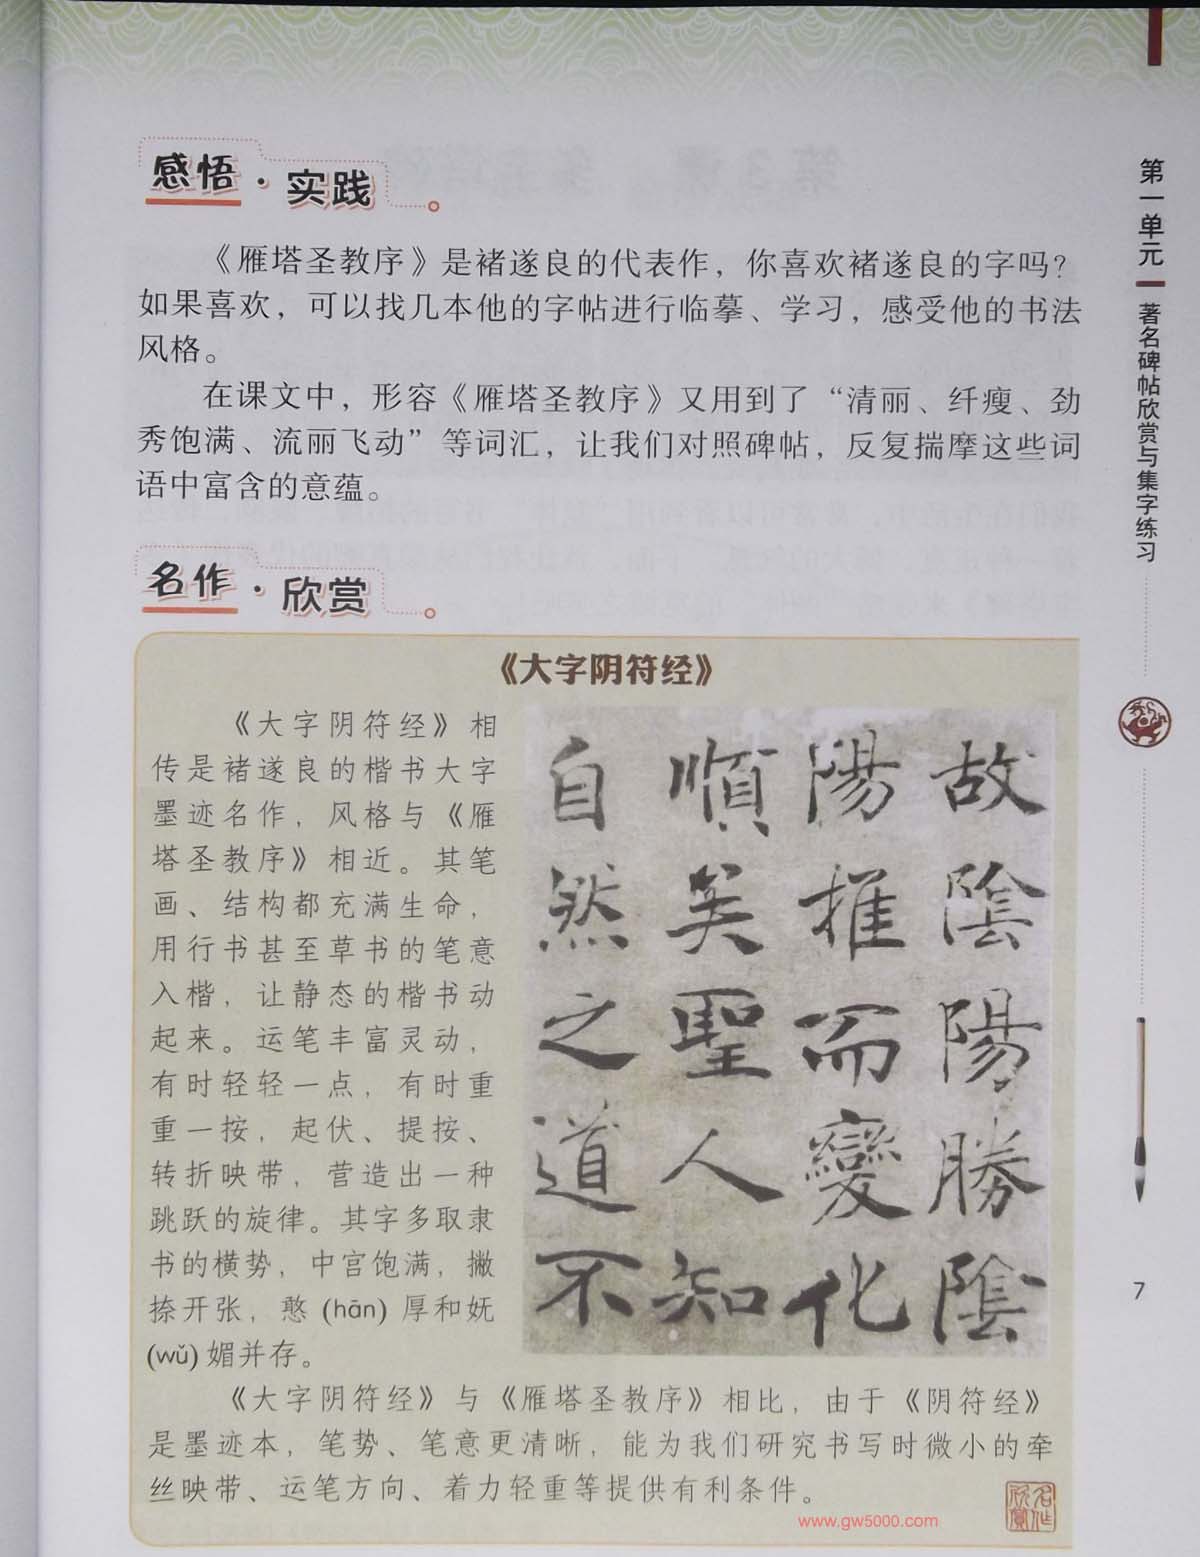 感悟·实践
《雁塔圣教序》是褚遂良的代表作，你喜欢褚遂良的字吗？
如果喜欢，可以找几本他的字帖进行临摹、学习，感受他的书法
风格。
在课文中，形容《雁塔圣教序》又用到了“清丽、纤瘦、劲
秀饱满、流丽飞动”等词汇，让我们对照碑帖，反复揣摩这些词
语中富含的意蕴。
名作·欣赏
《大字阴符经》
《大字阴符经》相
传是褚遂良的楷书大字
墨迹名作，风格与《雁
塔圣教序》相近。其笔
画、结构都充满生命，
用行书甚至草书的笔意
入楷，让静态的楷书动
起来。运笔丰富灵动，
有时轻轻一点，有时重
重一按，起伏、提按、
转折映带，营造出一种
跳跃的旋律。其字多取隶
书的横势，中宫饱满，撇
捺开张，憨 (hān) 厚和妩
(wǔ) 媚并存。
故陰陽勝陰
陽推而變化
順矣聖人知
自然之道不
《大字阴符经》与《雁塔圣教序》相比，由于《阴符经》
是墨迹本，笔势、笔意更清晰，能为我们研究书写时微小的牵
丝映带、运笔方向、着力轻重等提供有利条件。
名作欣赏
www.gw5000.com
第一单元
著名碑帖欣赏与集字练习
7